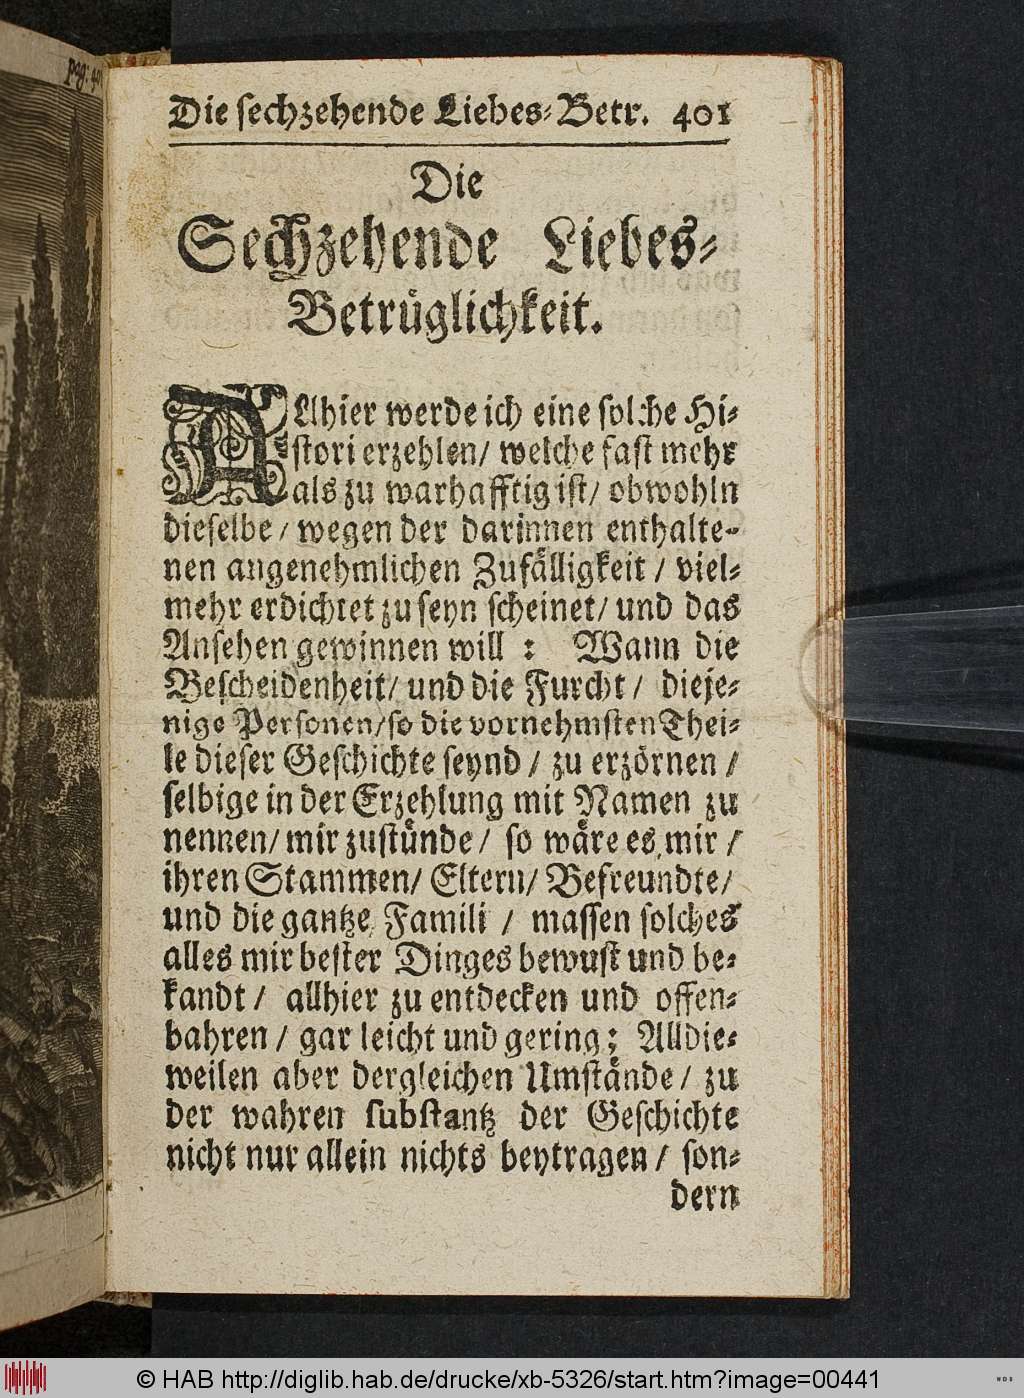 pag: 401
Die sechzehende Liebes-Betr. 401
Die
Sechzehende Liebes-
Betrüglichkeit.
ALlhier werde ich eine solche Hi-
stori erzehlen/ welche fast mehr
als zu warhafftig ist/ obwohln
dieselbe / wegen der darinnen enthalte-
nen angenehmlichen Zufälligkeit / viel-
mehr erdichtet zu seyn scheinet/ und das
Ansehen gewinnen will : Wann die
Bescheidenheit/ und die Furcht / dieje-
nige Personen/ so die vornehmsten Thei-
le dieser Geschichte seynd / zu erzörnen /
selbige in der Erzehlung mit Namen zu
nennen/ mir zustünde / so wäre es mir /
ihren Stammen/ Eltern/ Befreundte/
und die gantze Famili / massen solches
alles mir bester Dinges bewust und be-
kandt / allhier zu entdecken und offen-
bahren / gar leicht und gering; Alldie-
weilen aber dergleichen Umstände / zu
der wahren substantz der Geschichte
nicht nur allein nichts beytragen / son-
dern
© HAB http://diglib.hab.de/drucke/xb-5326/start.htm?image=00441